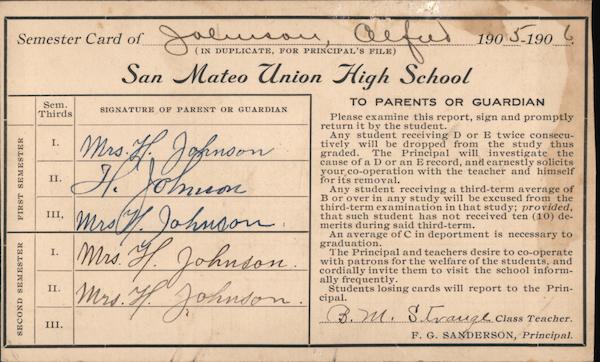 Semester Card of Johnson, Alfred 1905-1906
(IN DUPLICATE, FOR PRINCIPAL'S FILE)
San Mateo Union High School
Sem. Thirds
SIGNATURE OF PARENT OR GUARDIAN
FIRST SEMESTER
I. Mrs. H. Johnson
II. H. Johnson
III. Mrs H. Johnson.
SECOND SEMESTER
I. Mrs. H. Johnson.
II. Mrs. H. Johnson.
III.
TO PARENTS OR GUARDIAN
Please examine this report, sign and promptly
return it by the student.
Any student receiving D or E twice consecu-
tively will be dropped from the study thus
graded. The Principal will investigate the
cause of a D or an E record, and earnestly solicits
your co-operation with the teacher and himself
for its removal.
Any student receiving a third-term average of
B or over in any study will be excused from the
third-term examination in that study; provided,
that such student has not received ten (10) de-
merits during said third-term.
An average of C in deportment is necessary to
graduation.
The Principal and teachers desire to co-operate
with patrons for the welfare of the students, and
cordially invite them to visit the school inform-
ally frequently.
Students losing cards will report to the Prin-
cipal.
B. M. Strange Class Teacher.
F. G. SANDERSON, Principal.